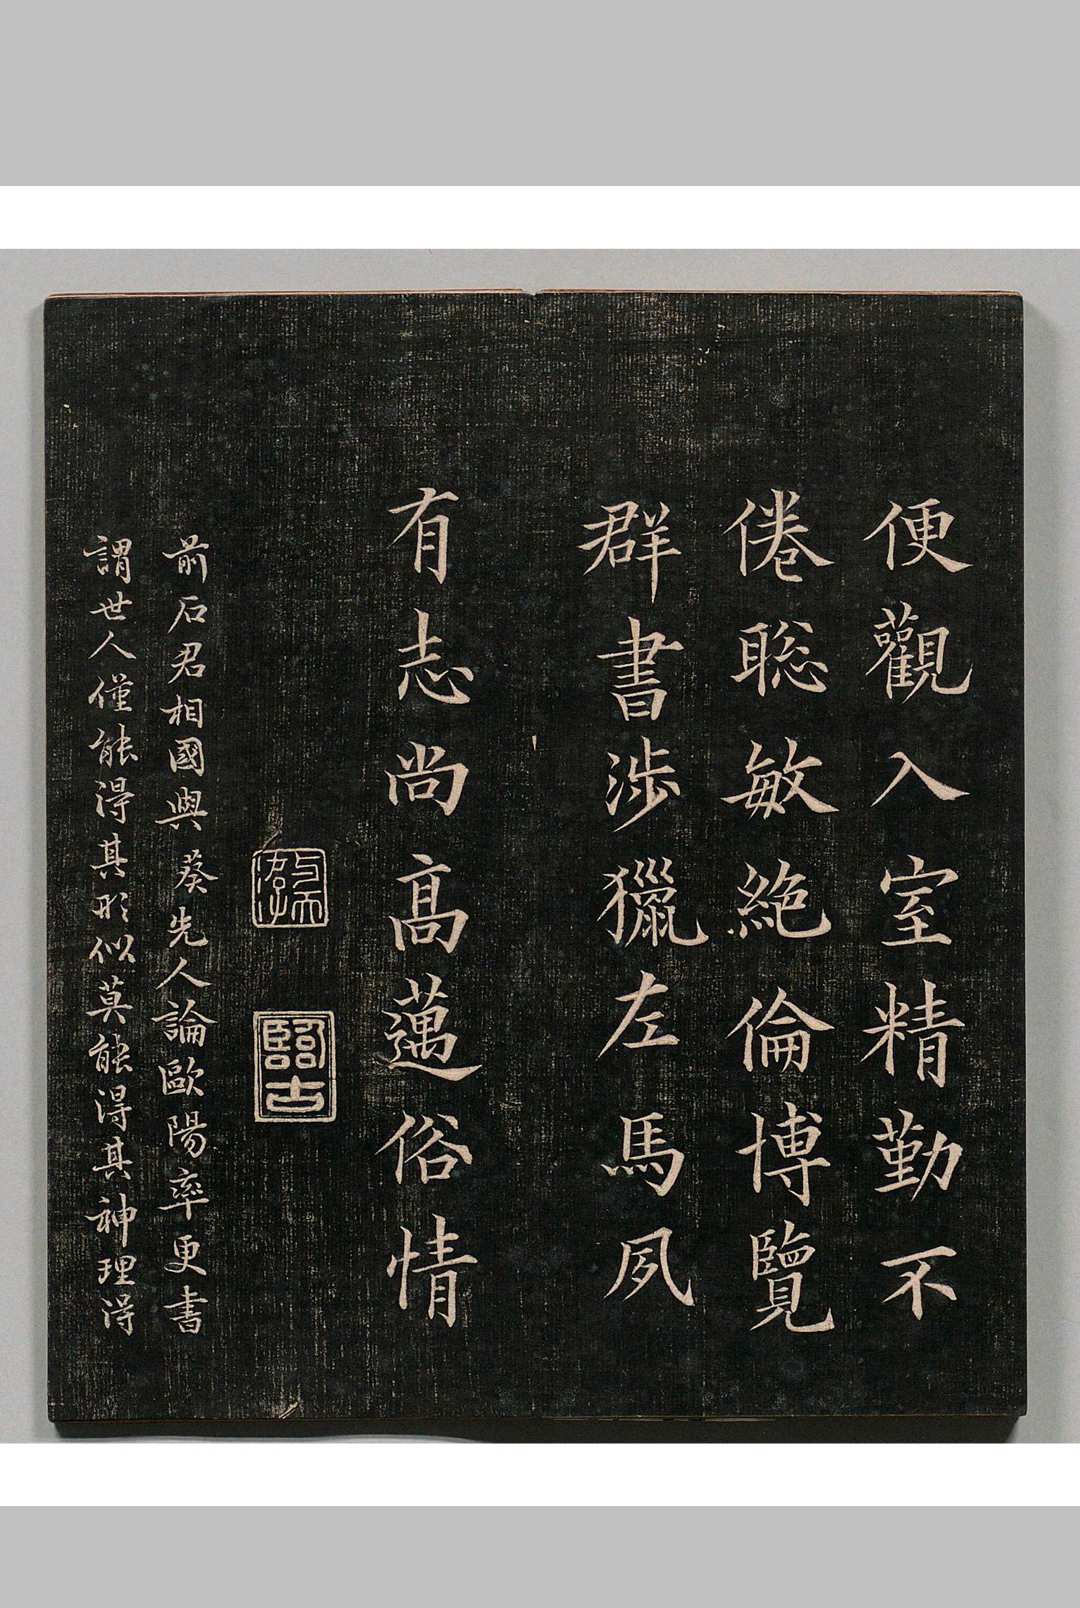 便觀入室精勤不
倦聡敏絶倫博覽
群書涉獵左馬夙
有志尚髙邁俗情
前石君相國與葵先人論歐陽率更書
謂世人僅能得其形似莫能得其神理得